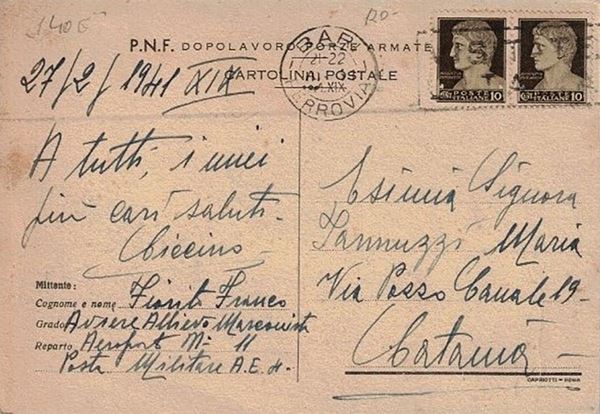 340 E
RO-
P.N.F. DOPOLAVORO FORZE ARMATE
CARTOLINA POSTALE
BARI
21-22
XIX
FERROVIA
POSTE ITALIANE 10
POSTE ITALIANE 10
27/2/1941 XIX
A tutti, i miei
più cari saluti -
Ciccino -
Mittente:
Cognome e nome Fiorito Franco
Grado Aviere Allievo Marconista
Reparto Aeroport No 11
Posta Militare A.E. 4.
Esimia Signora
Iannuzzi Maria
Via Pozzo Canale 19 -
Catania -
CAPRIOTTI - ROMA